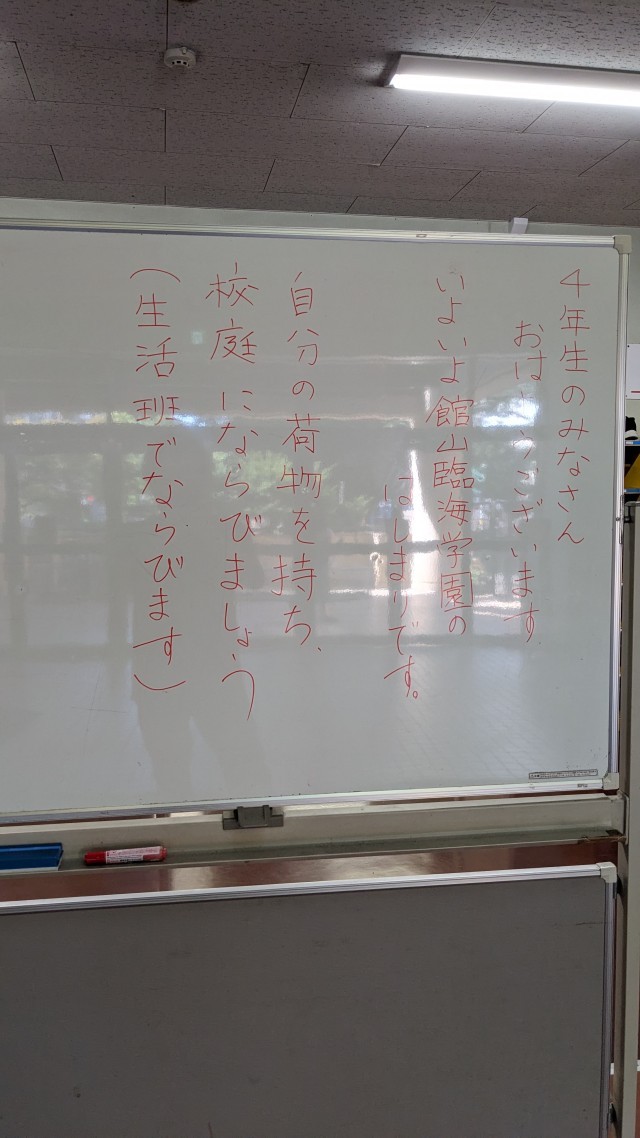 4年生のみなさん
おはようございます
いよいよ館山臨海学園の
はじまりです。
自分の荷物を持ち、
校庭にならびましょう
(生活班でならびます)